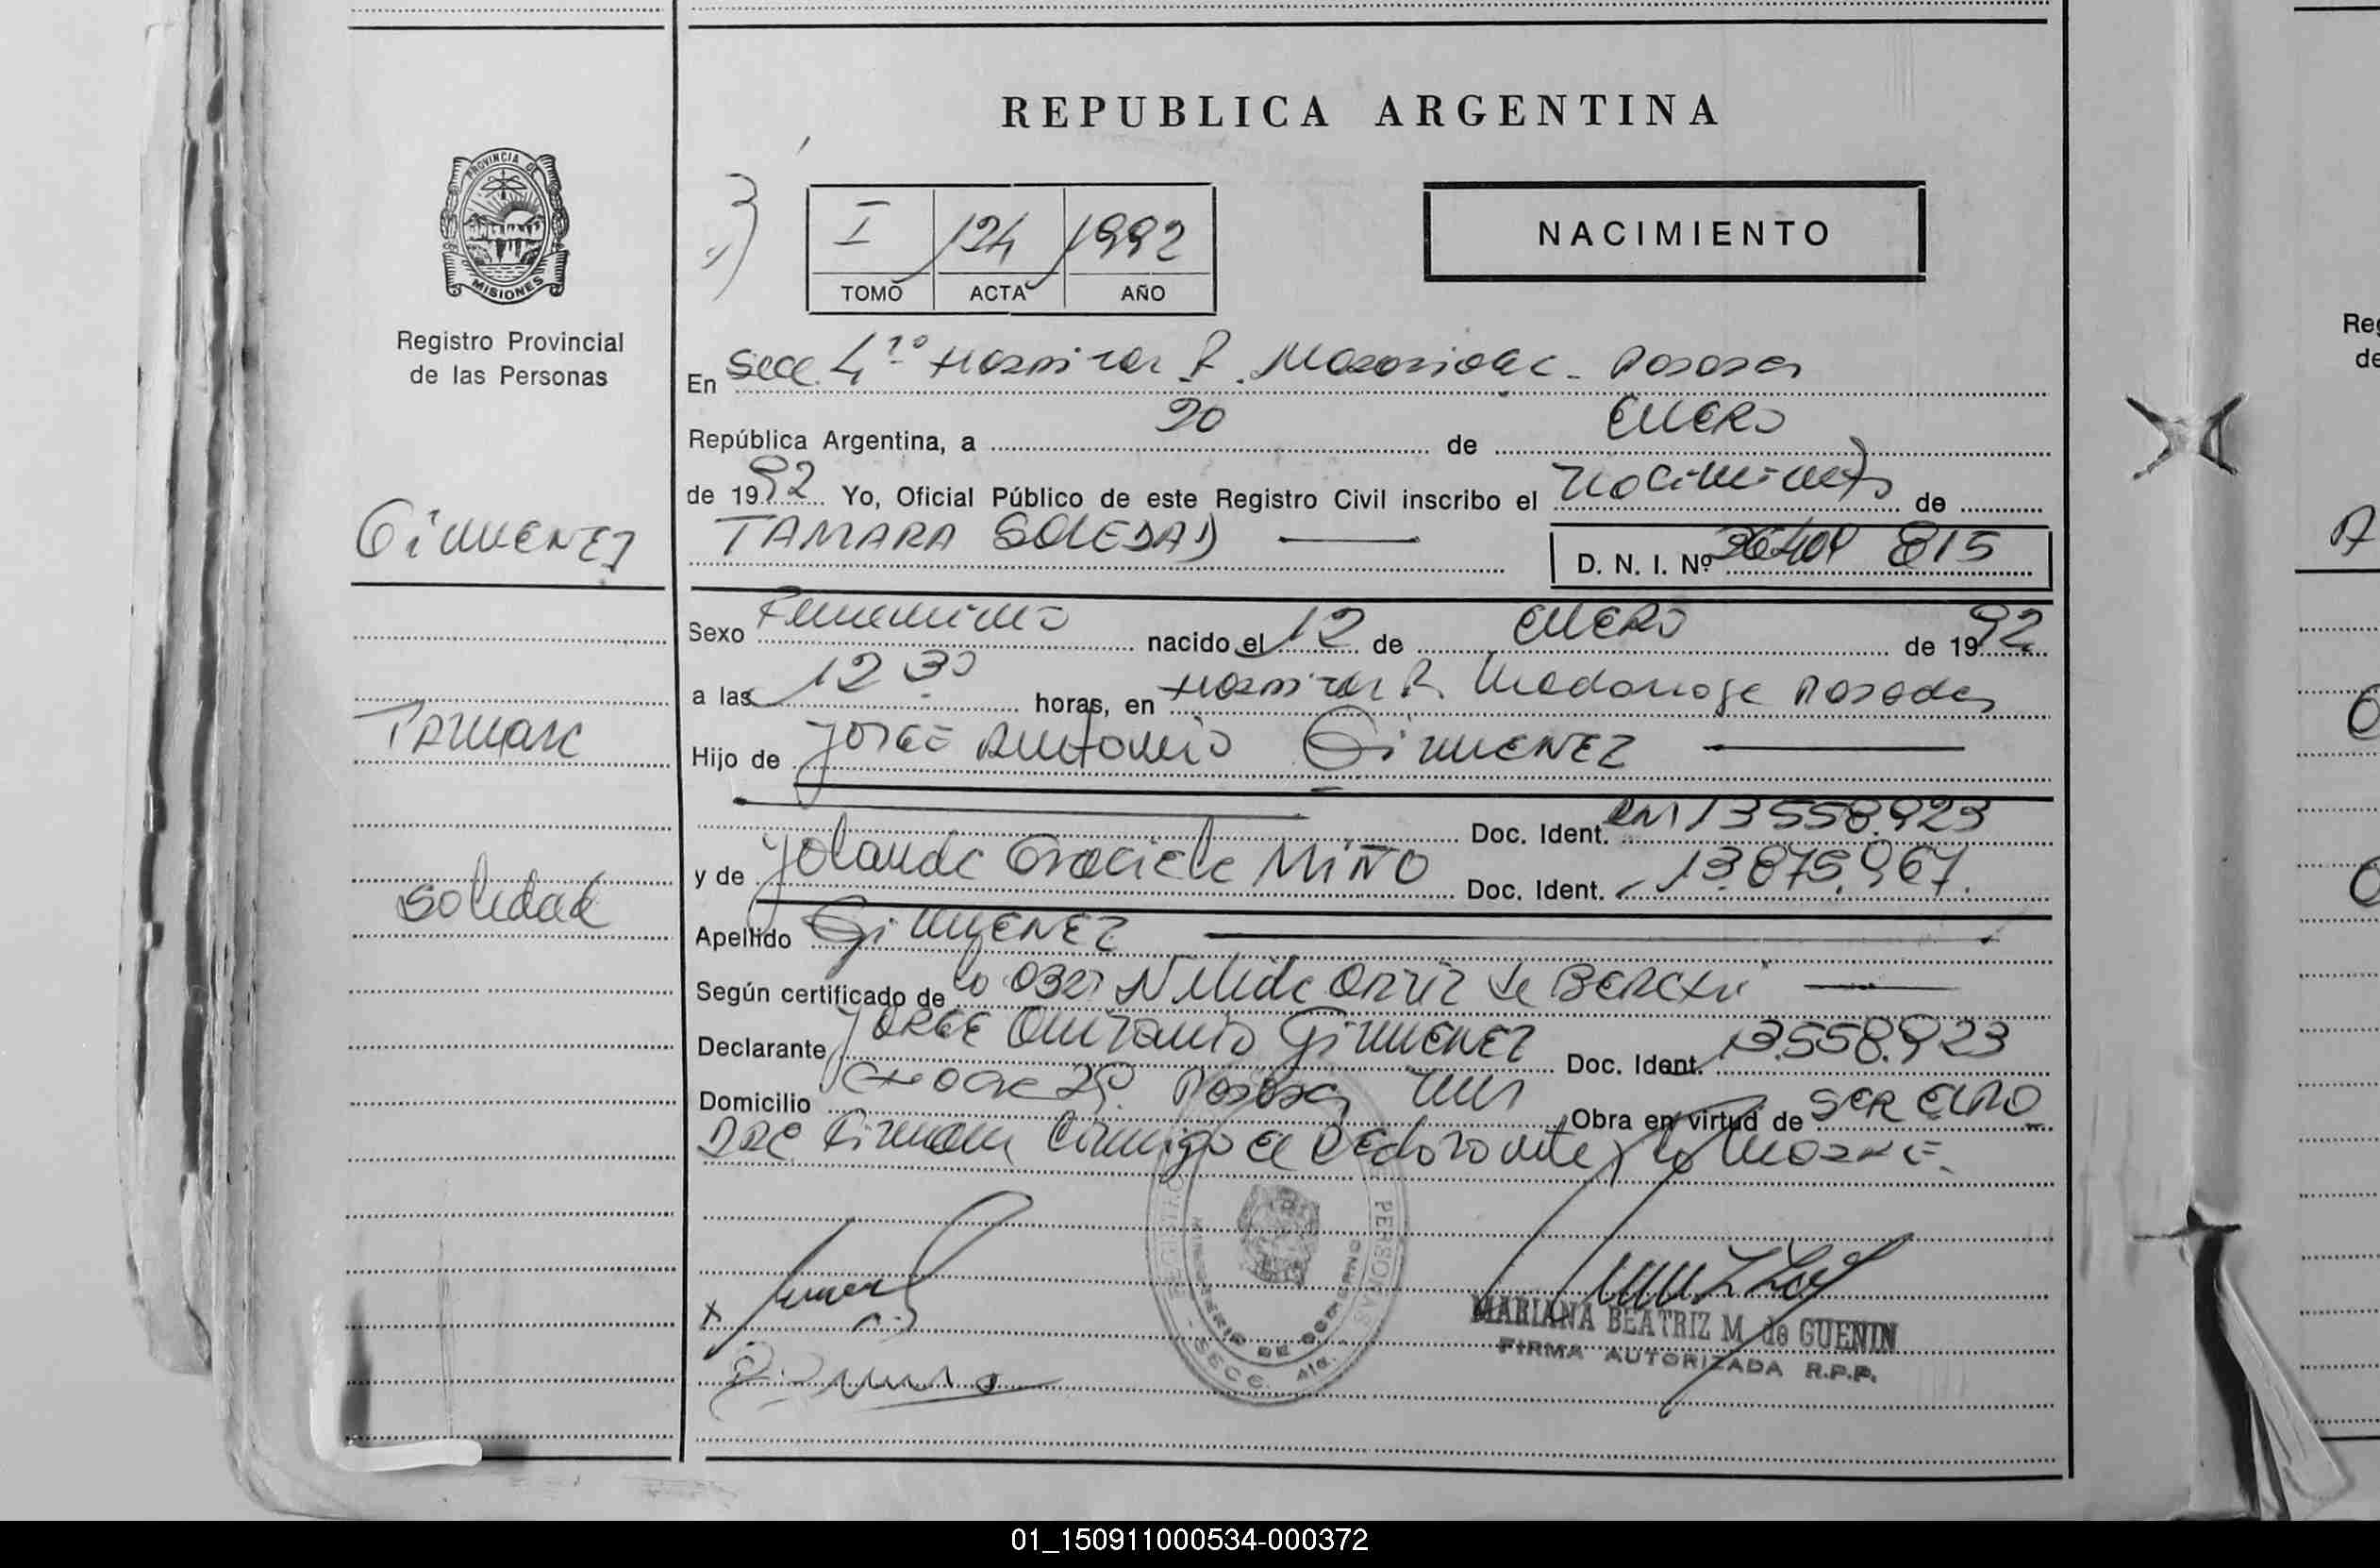 REPUBLICA ARGENTINA
PROVINCIA DE
MISIONES
Registro Provincial
de las Personas
I 124 1992
TOMO ACTA AÑO
NACIMIENTO
En Secc. 4ta Hospital R. Madariaga - Posadas
República Argentina, a 20 de ENERO
de 1992 Yo, Oficial Público de este Registro Civil inscribo el Nacimiento de
GIMENEZ
TAMARA SOLEDAD
D. N. I. Nº 815
Sexo Femenino nacido el 12 de ENERO de 1992
a las 12 30 horas, en Hospital R. Madariaga Posadas
Tamara
Hijo de Jorge Antonio GIMENEZ
Doc. Ident. DNI 13.558.923
y de Yolanda Graciela MIÑO Doc. Ident. 13.875.967.
Soledad
Apellido GIMENEZ
Según certificado de
Declarante JORGE Antonio GIMENEZ Doc. Ident. 13.558.923
Domicilio Posadas Mns Obra en virtud de SER EL PRO
Firman conmigo el Declarante y la Madre.
PERSONAS
MINISTERIO DE GOBIERNO
SECC. 4ta.
MARIANA BEATRIZ M. de GUENIN
FIRMA AUTORIZADA R.P.P.
01_150911000534-000372